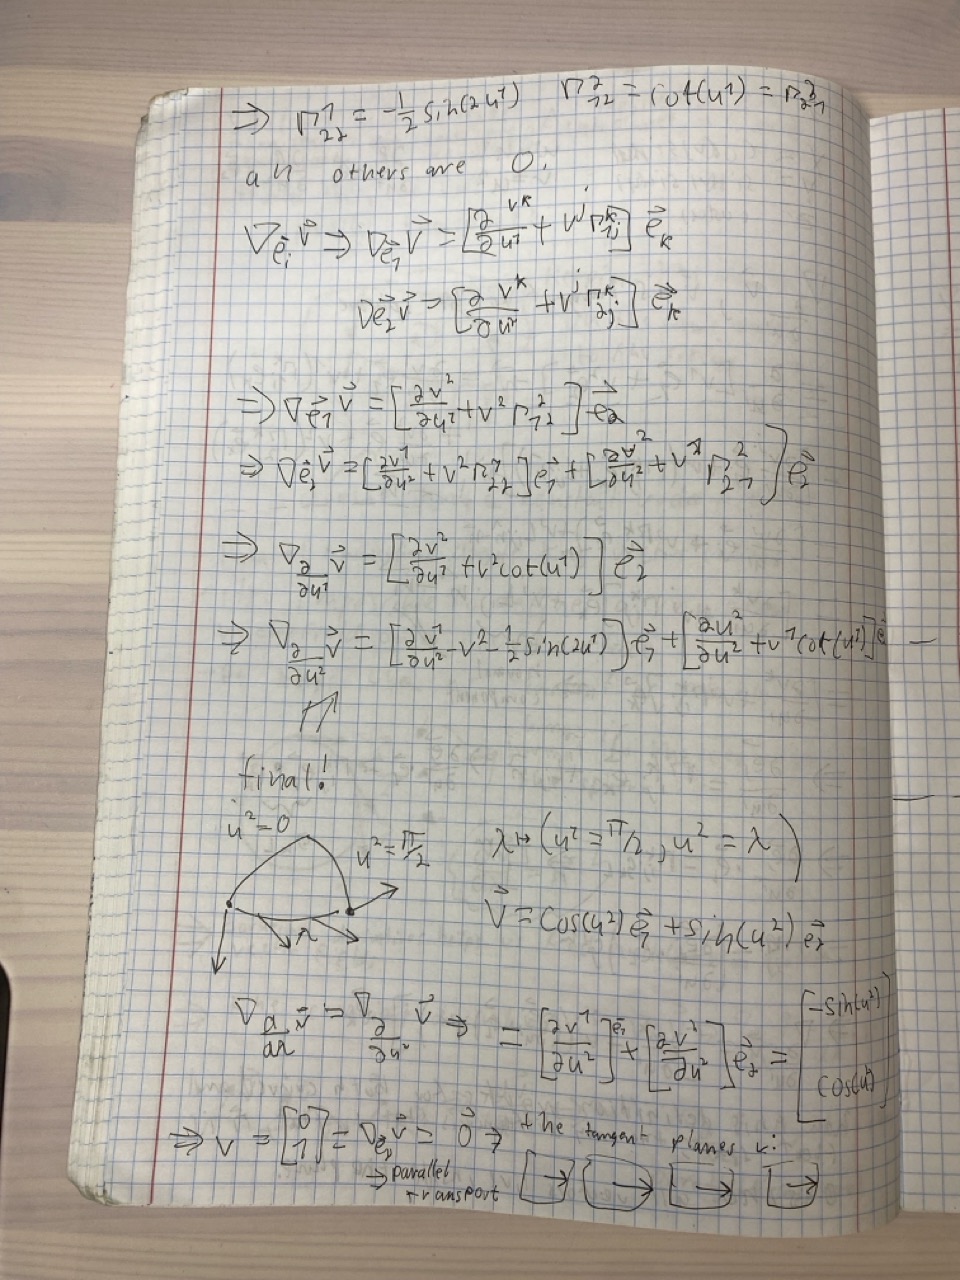 ⇒ Γ¹₂₂ = -½ sin(2u¹) Γ²₁₂ = cot(u¹) = Γ²₂₁
all others are 0.
∇_{e⃗ᵢ} v⃗ ⇒ ∇_{e⃗₁} v⃗ = [∂v^k/∂u¹ + v^j Γ^k_{1j}] e⃗_k
∇_{e⃗₂} v⃗ = [∂v^k/∂u² + v^j Γ^k_{2j}] e⃗_k
⇒ ∇_{e⃗₁} v⃗ = [∂v²/∂u¹ + v² Γ²₁₂] e⃗₂
⇒ ∇_{e⃗₂} v⃗ = [∂v¹/∂u² + v² Γ¹₂₂] e⃗₁ + [∂v²/∂u² + v¹ Γ²₂₁] e⃗₂
⇒ ∇_{∂/∂u¹} v⃗ = [∂v²/∂u¹ + v² cot(u¹)] e⃗₂
⇒ ∇_{∂/∂u²} v⃗ = [∂v¹/∂u² - v² - ½ sin(2u¹)] e⃗₁ + [∂u²/∂u² + v¹ cot(u¹)] e⃗
⇑
final!
u² = 0
u² = π/2
λ ↦ (u¹ = π/2, u² = λ)
v⃗ = cos(u²) e⃗₁ + sin(u²) e⃗₂
λ
∇_{d/dλ} v⃗ = ∇_{∂/∂u²} v⃗ ⇒ = [∂v¹/∂u²] e⃗₁ + [∂v²/∂u²] e⃗₂ = [-sin(u²) cos(u²)]
⇒ v = [0 1] = ∇_{e⃗₂} v⃗ = 0⃗ → the tangent planes v:
→ parallel
transport